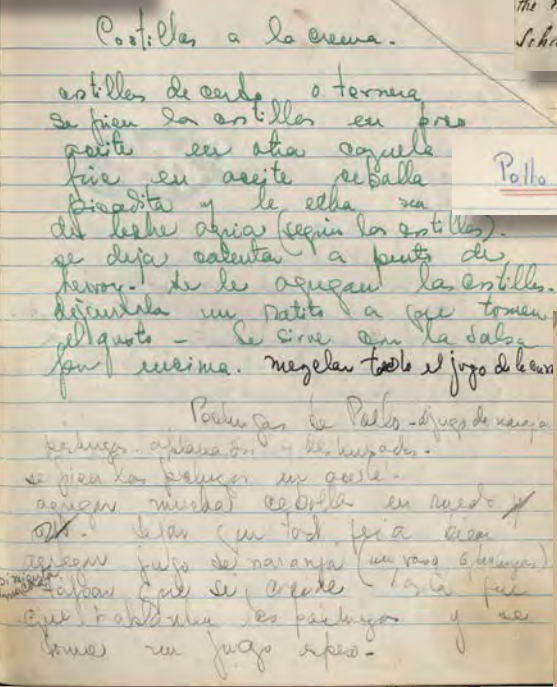 Costillas a la crema.
costillas de cerdo o ternera
se frien las costillas en poco
aceite en otra cazuela
frie en aceite ceballa
picadita y le echa
de leche agria (según las costillas).
se deja calentar a punto de
hervor. Se le agregan las costillas.
dejandola un ratito a que tomen
el gusto - Se sirve con la salsa
por encima. mezclar todo el jugo de la
Pechugas de Pollo - jugo de naranja
pechugas aplanadas y deshuesadas.
se frien las pechugas en aceite.
agregan mucha cebolla en
dejar que todo fria bien
agregan jugo de naranja (un vaso 6 pechugas)
tapan que se hasta que
que las pechugas y se
forme un jugo espeso -
the
Sch
Pollo